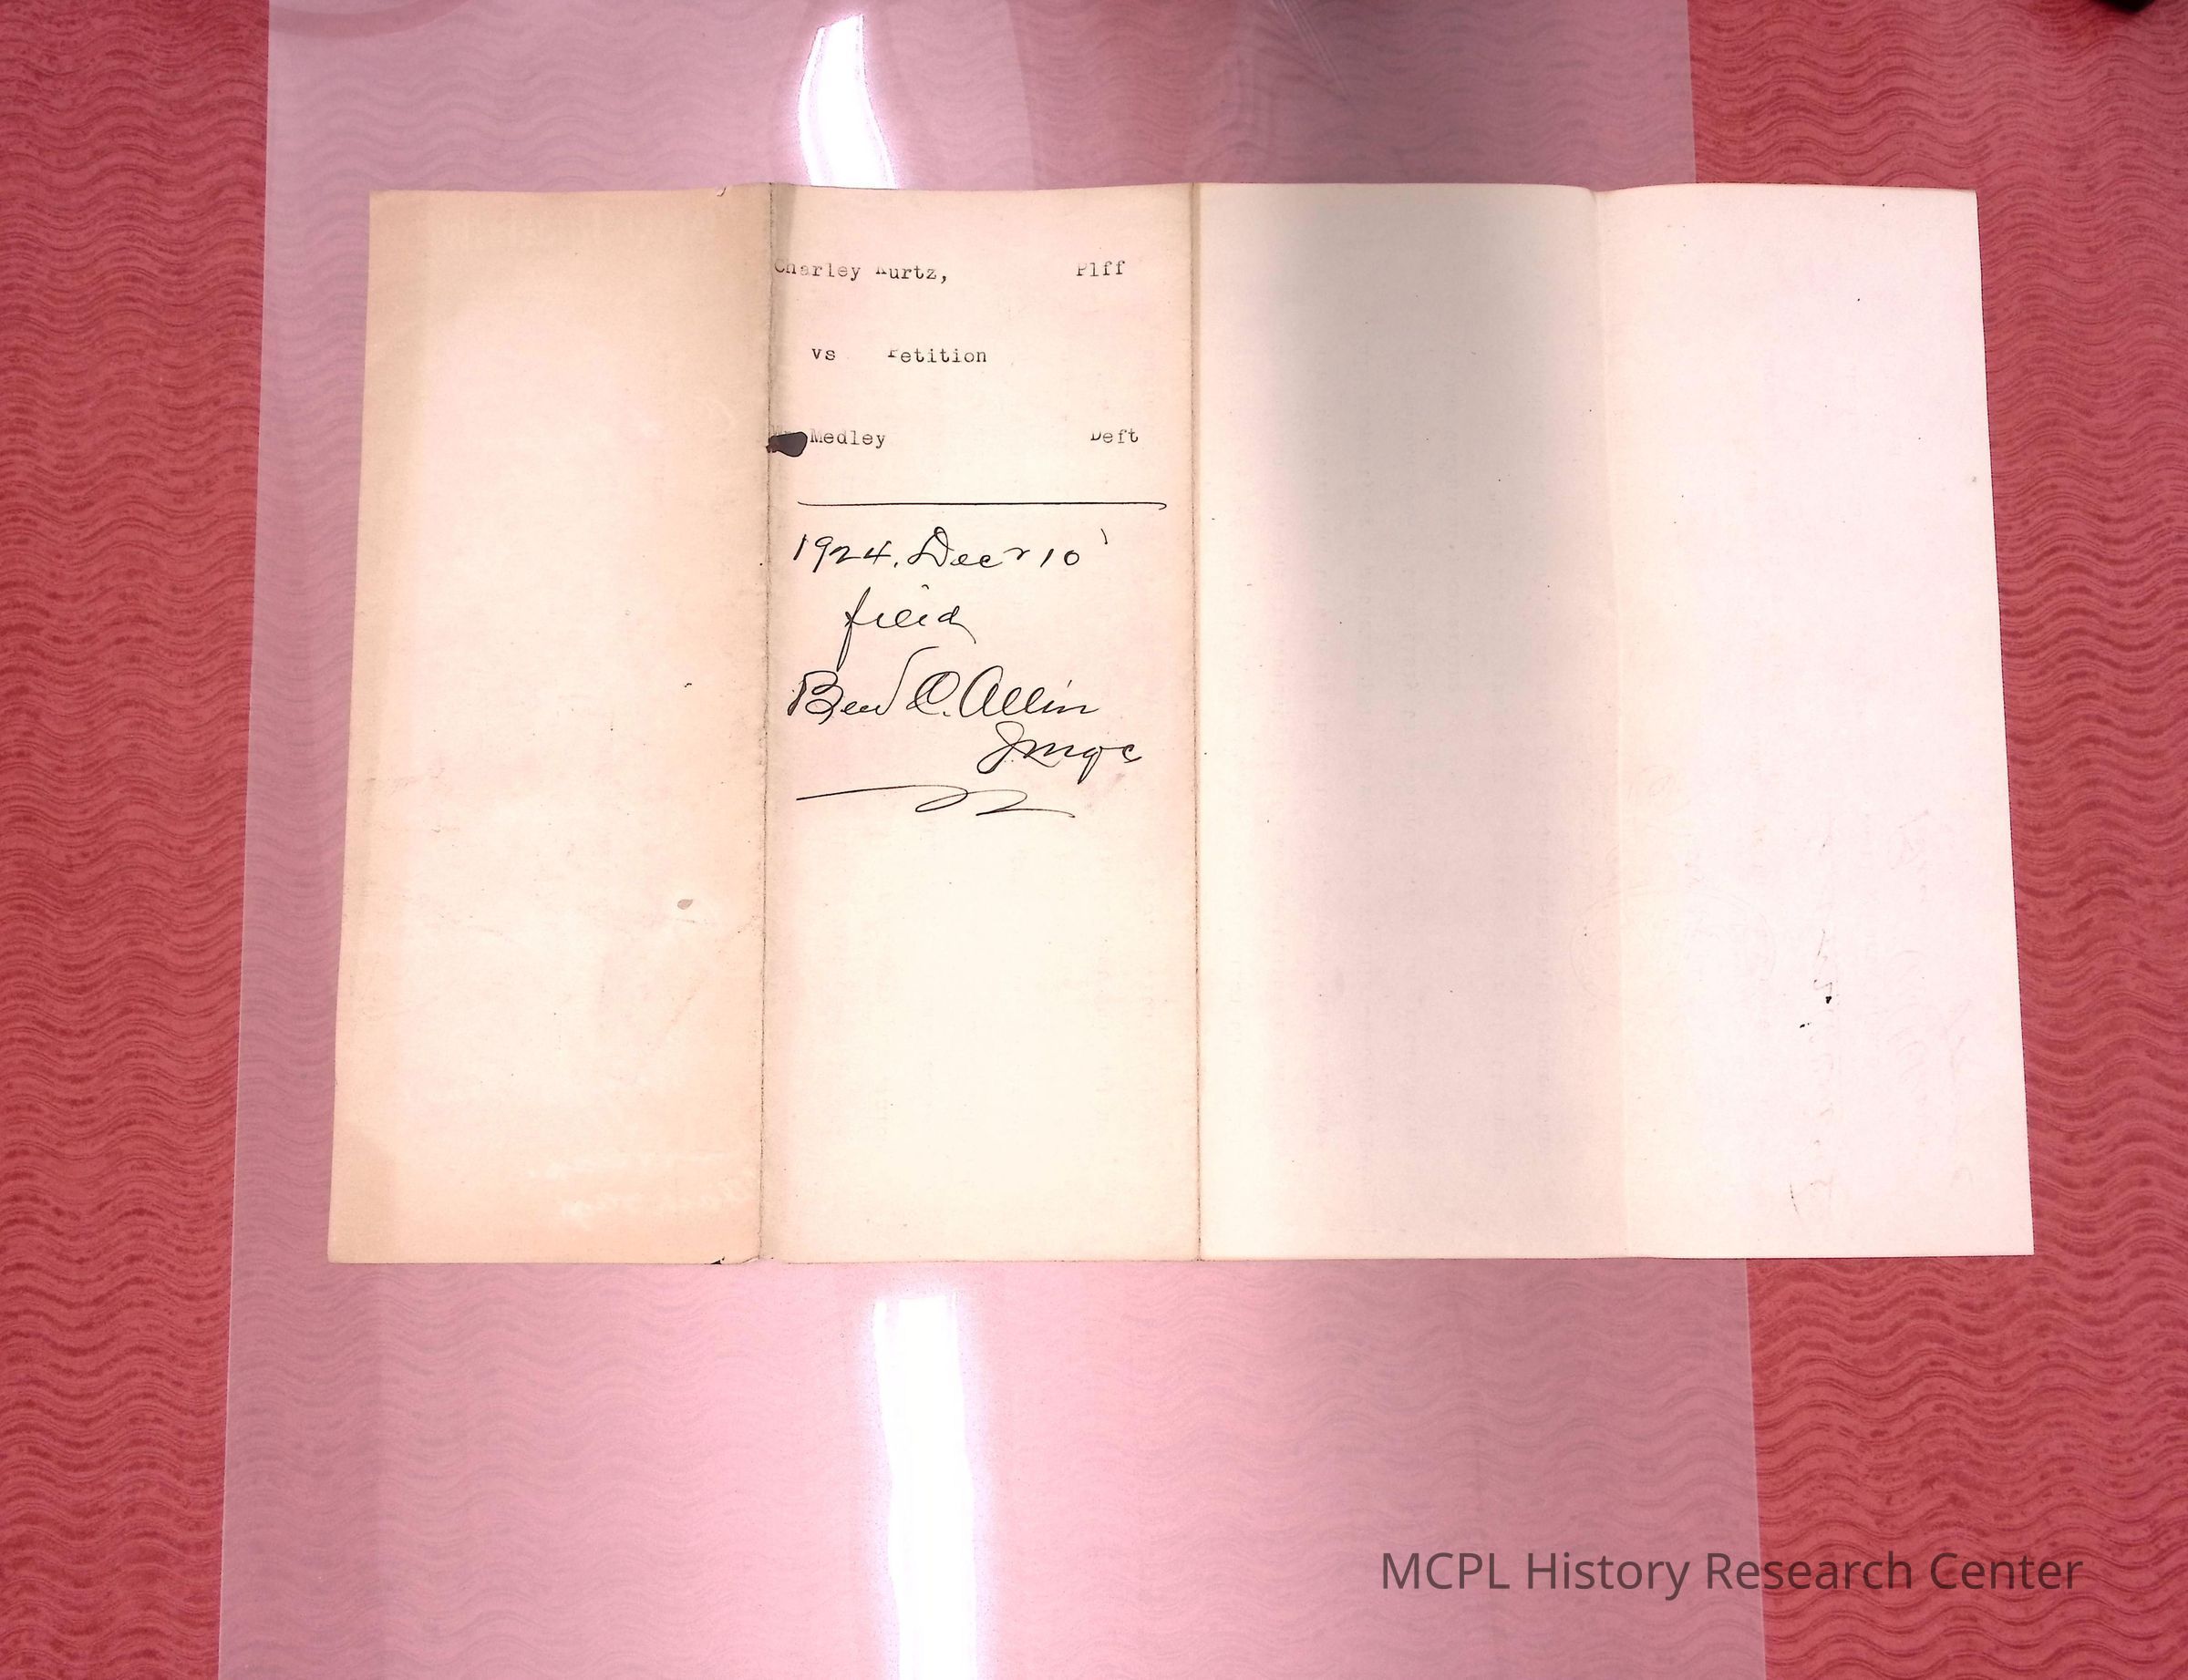 Charley Kurtz, Plff
vs Petition
Medley Deft
1924. Decr 10
filed
Ben C. Allin
MCPL History Research Center